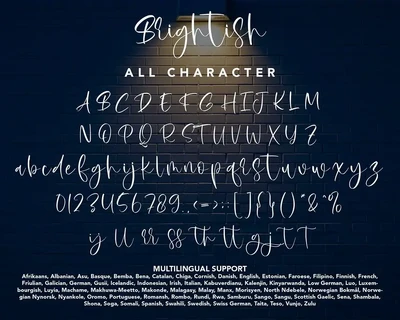 Brightish
ALL CHARACTER
A B C D E F G H I J K L M
N O P Q R S T U V W X Y Z
a b c d e f g h i j k l m n o p q r s t u v w x y z
0 1 2 3 4 5 6 7 8 9 . , < = > : ; [ ] { } ( ) " & ^ %
ij ll rr ss th tt g j I T
MULTILINGUAL SUPPORT
Afrikaans, Albanian, Asu, Basque, Bemba, Bena, Catalan, Chiga, Cornish, Danish, English, Estonian, Faroese, Filipino, Finnish, French,
Friulian, Galician, German, Gusii, Icelandic, Indonesian, Irish, Italian, Kabuverdianu, Kalenjin, Kinyarwanda, Low German, Luo, Luxem-
bourgish, Luyia, Machame, Makhuwa-Meetto, Makonde, Malagasy, Malay, Manx, Morisyen, North Ndebele, Norwegian Bokmål, Norwe-
gian Nynorsk, Nyankole, Oromo, Portuguese, Romansh, Rombo, Rundi, Rwa, Samburu, Sango, Sangu, Scottish Gaelic, Sena, Shambala,
Shona, Soga, Somali, Spanish, Swahili, Swedish, Swiss German, Taita, Teso, Vunjo, Zulu